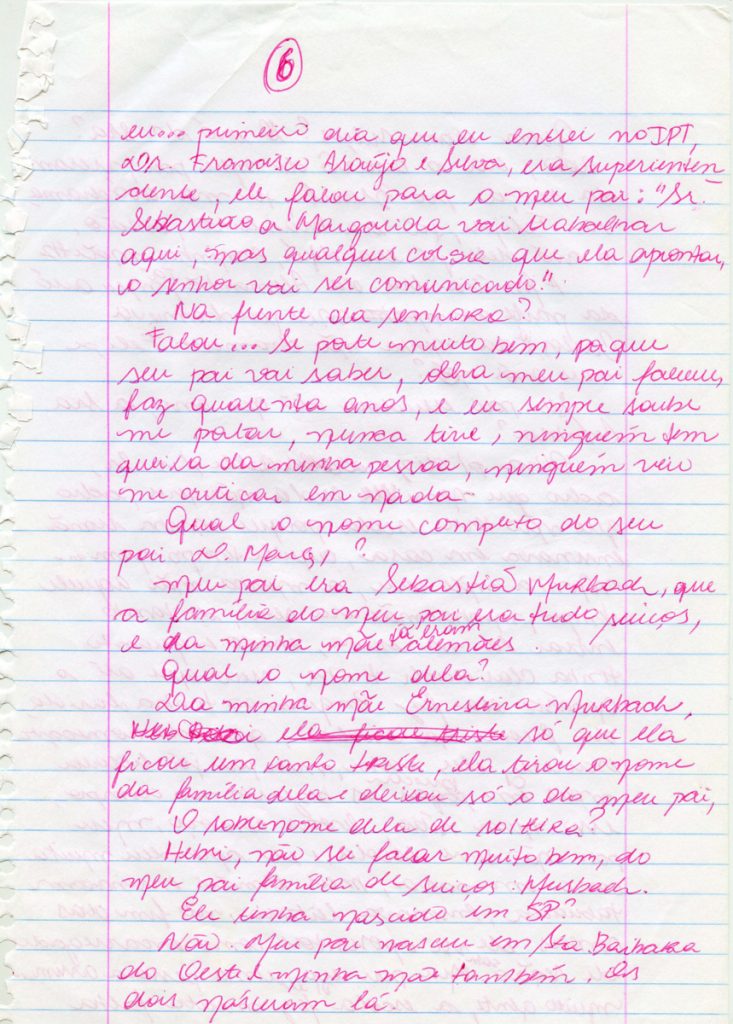 6
eu... primeiro dia que eu entrei no IPT,
Dr. Francisco Araújo e Silva, era superienten
dente, ele falou para o meu pai: "Sr.
Sebastião a Margarida vai trabalhar
aqui, mas qualquer coisa que ela aprontar,
o senhor vai ser comunicado!"
Na frente da senhora?
Falou... Se porte muito bem, porque
seu pai vai saber, olha meu pai faleceu,
faz quarenta anos, e eu sempre soube
me portar, nunca tive, ninguém tem
queixa da minha pessoa, ninguém veio
me criticar em nada-
Qual o nome completo do seu
pai D. Marg,?
Meu pai era Sebastião Murbach, que
a família do meu pai era tudo suiços,
e da minha mãe já eram alemães.
Qual o nome dela?
Da minha mãe Ernestina Murbach,
ela ficou triste só que ela
ficou um tanto triste, ela tirou o nome
da família dela e deixou só o do meu pai,
O sobrenome dela de solteira?
Hemi, não sei falar muito bem, do
meu pai família de suiços: Murbach.
Ele tinha nascido em SP?
Não. Meu pai nasceu em Sta Barbara
do Oeste e minha mãe também. Os
dois nasceram lá.